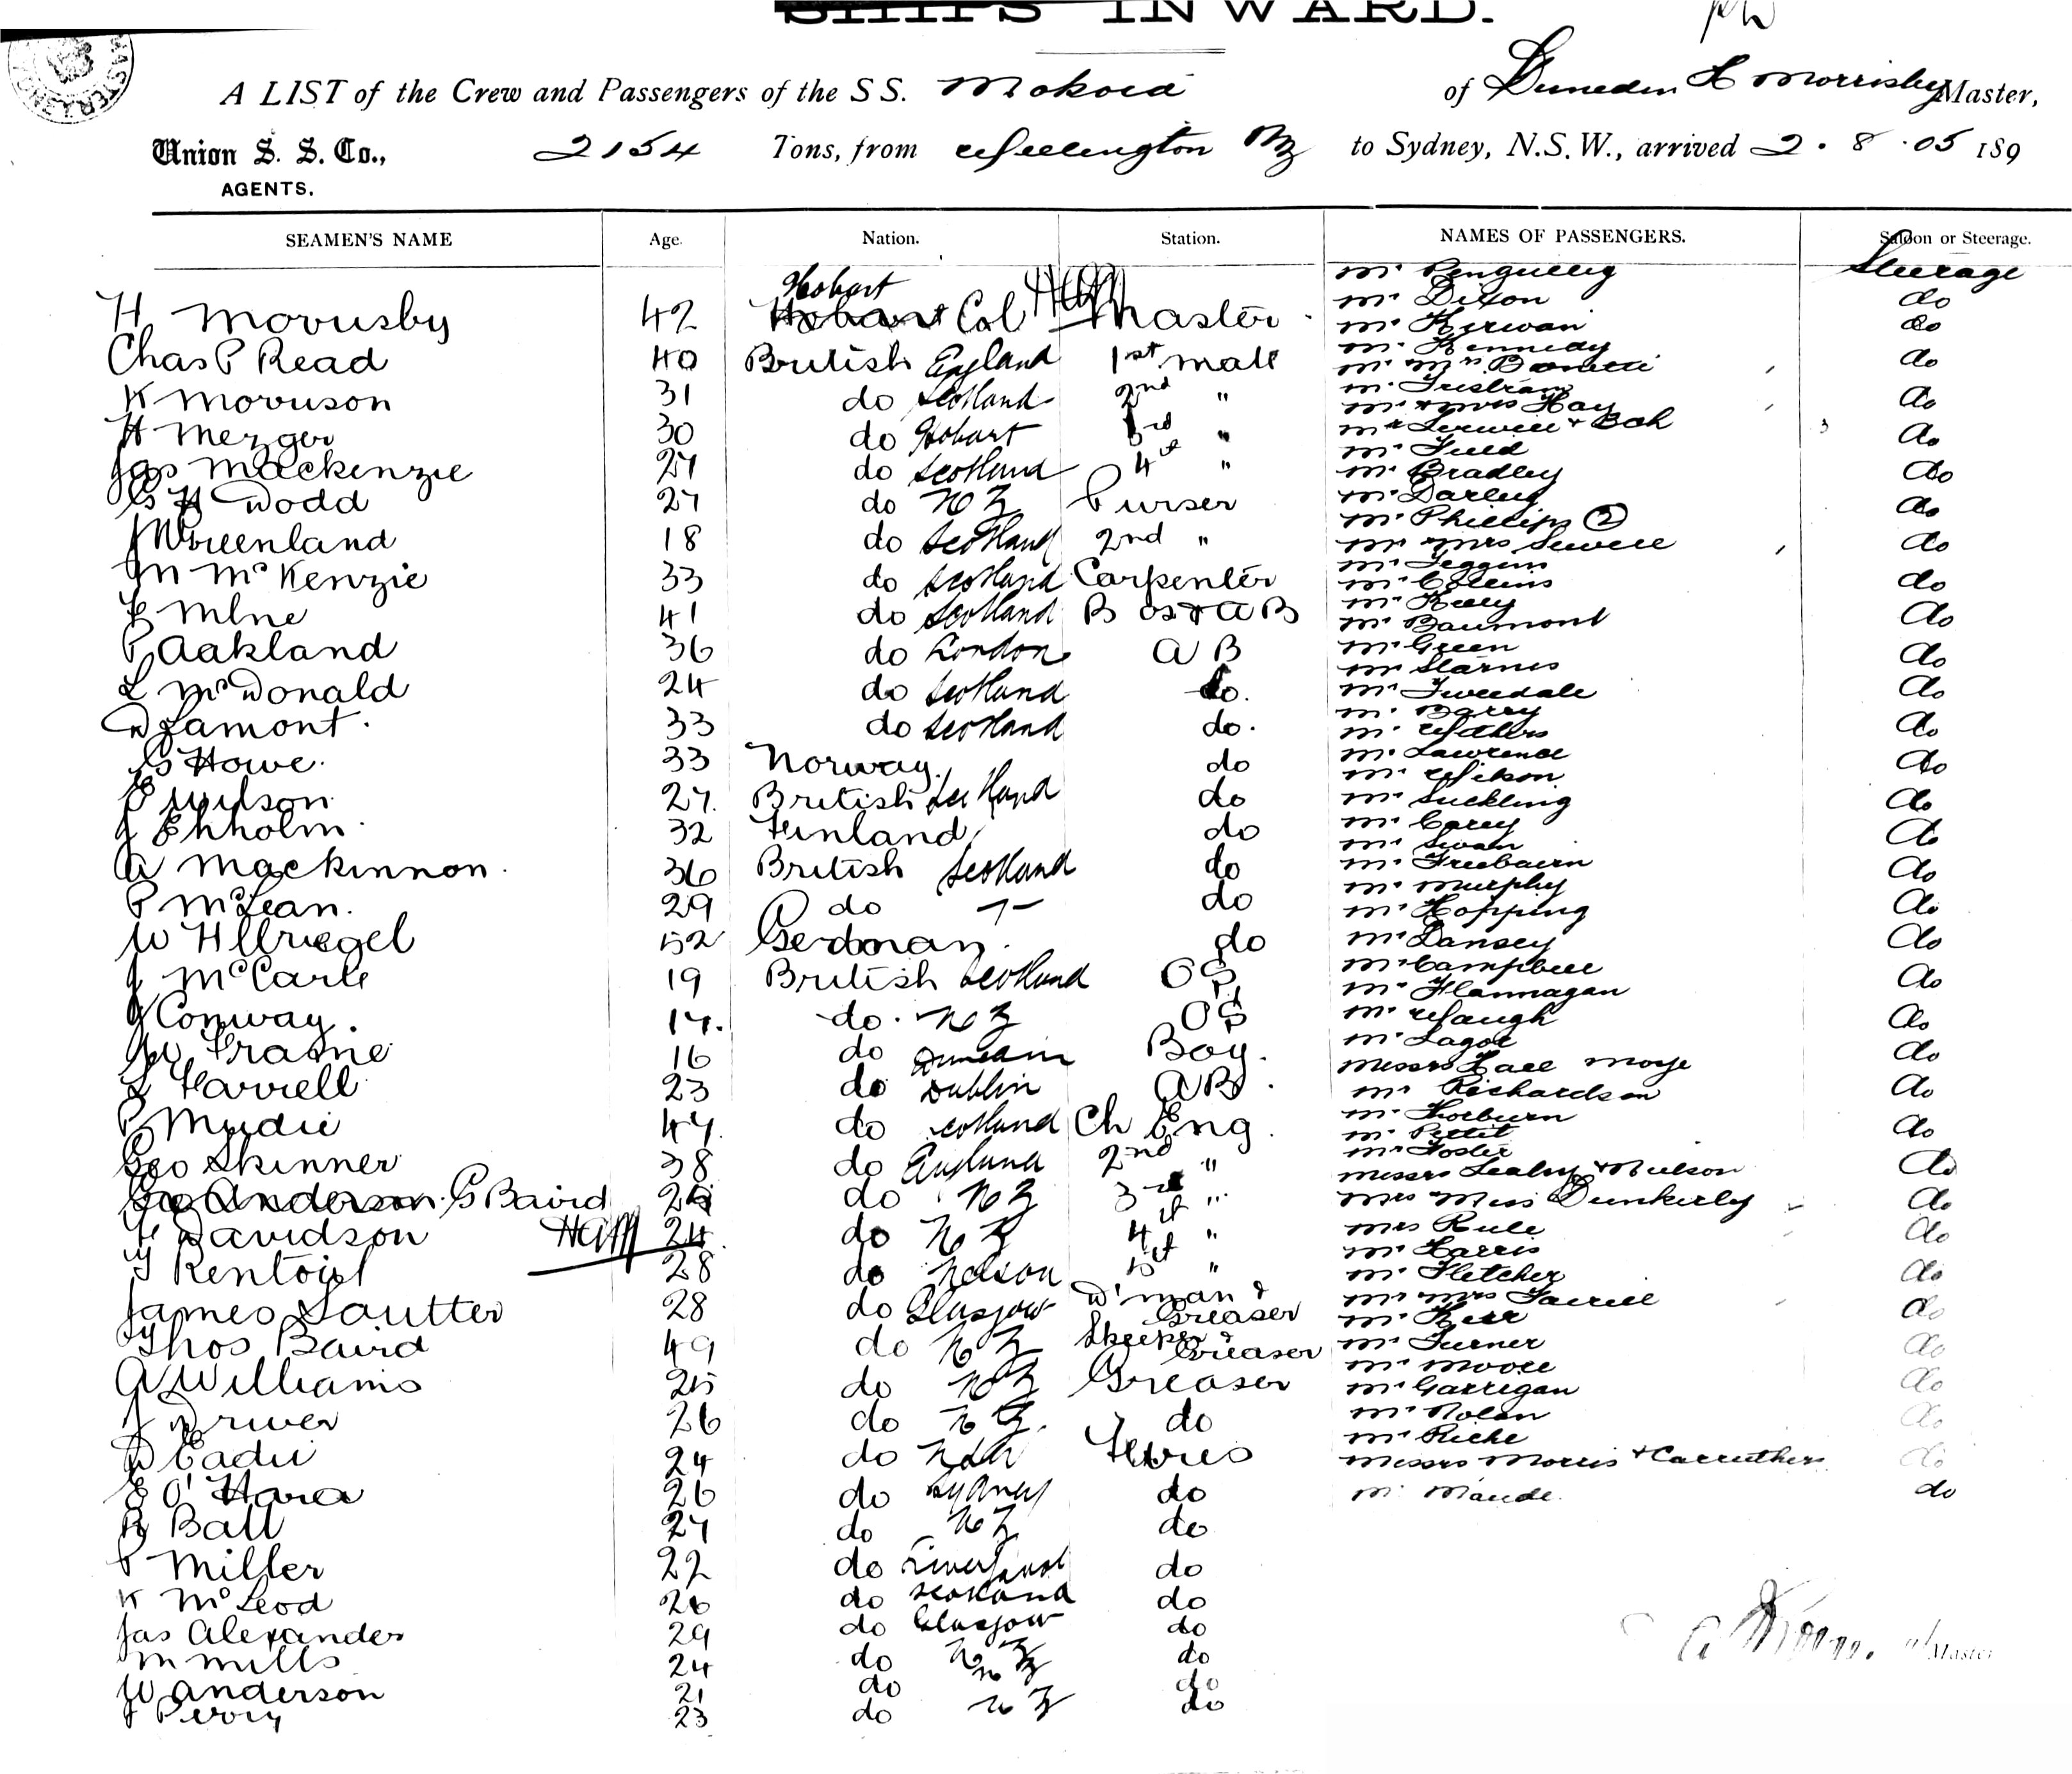 SHIPS INWARD.
A LIST of the Crew and Passengers of the SS. Mokoia of Dunedin H Morrisby Master,
Union S. S. Co., 2154 Tons, from Wellington NZ to Sydney, N.S.W., arrived 2. 8. 05 189
AGENTS.
SEAMEN'S NAME Age. Nation. Station. NAMES OF PASSENGERS. Saloon or Steerage.
H Morrisby 42 Hobart Col Master
Chas P Read 40 British England 1st mate
K Morrison 31 do Scotland 2nd "
H Mezger 30 do Hobart 3rd "
Jas Mackenzie 27 do Scotland 4th "
G H Dodd 27 do NZ Purser
Greenland 18 do Scotland 2nd "
M McKenzie 33 do Scotland Carpenter
Milne 41 do Scotland B os & AB
P Aakland 36 do London AB
L McDonald 24 do Scotland do.
D Lamont. 33 do Scotland do.
Howe. 33 Norway. do
Wilson 27. British Scotland do
J Ekholm. 32 Finland do
A Mackinnon. 36 British Scotland do
P McLean. 29 do do
W Hllriegel 52 German. do
J McCarle 19 British Scotland OS
J Conway. 17. do. NZ OS
Frame 16 do Boy.
L Farrell 23 do Dublin AB.
P Mudie 47. do Scotland Ch Eng.
Geo Skinner 38 do England 2nd "
Geo Anderson. G Baird do NZ 3rd "
Davidson 24 do NZ 4th "
28 do Nelson 5th "
James Sautter 28 do Glasgow D'man & Greaser
Thos Baird 49 do NZ Skeeper & Greaser
A Williams 25 do NZ Greaser
J Driver 26 do NZ. do
D Eadie 24 do
E O'Hara 26 do Sydney do
R Ball 27 do NZ do
P Miller 22 do Liverpool do
K McLeod 26 do Scotland do
Jas Alexander 29 do Glasgow do
M Mills 24 do NZ do
W Anderson 21 do NZ do
J Perry 23 do NZ do
Steerage
Mr Dixon do
Mr Kerwan do
Mr Kennedy
Mr Mrs do
Mr Tristram
Mr & Mrs Hay do
do
Mr
Mr Bradley do
Mr Darley
Mr Phillips (2) do
Mr Mrs Sewell do
Mr
Mr Collins do
Mr Kelly
Mr Baumont do
Mr Green
Mr Starnes do
Mr Tweedale do
Mr Barry
Mr Withers do
Mr Lawrence
Mr Wilson do
Mr Suckling do
Mr Carey
Mr Swan do
Mr Freebairn
Mr Murphy do
Mr Hopping do
Mr Dansey do
Mr Campbell
Mr Flannagan do
Mr Waugh do
Mr
Messrs Hall Moye do
Mr Richardson do
Mr Thorburn
Mr Pettit do
Mr Foster
Messrs Sealey & Neilson do
Mrs Miss Dunkerly do
Mrs Rule do
Mr Harris
Mr Fletcher do
Mr Mrs Farrell do
Mr Kerr
Mr Turner do
Mr Moore
Mr Garrigan do
Mr Nolan do
Mr Riche
Messrs Morris & Carruthers do
Mr Maude. do
Master